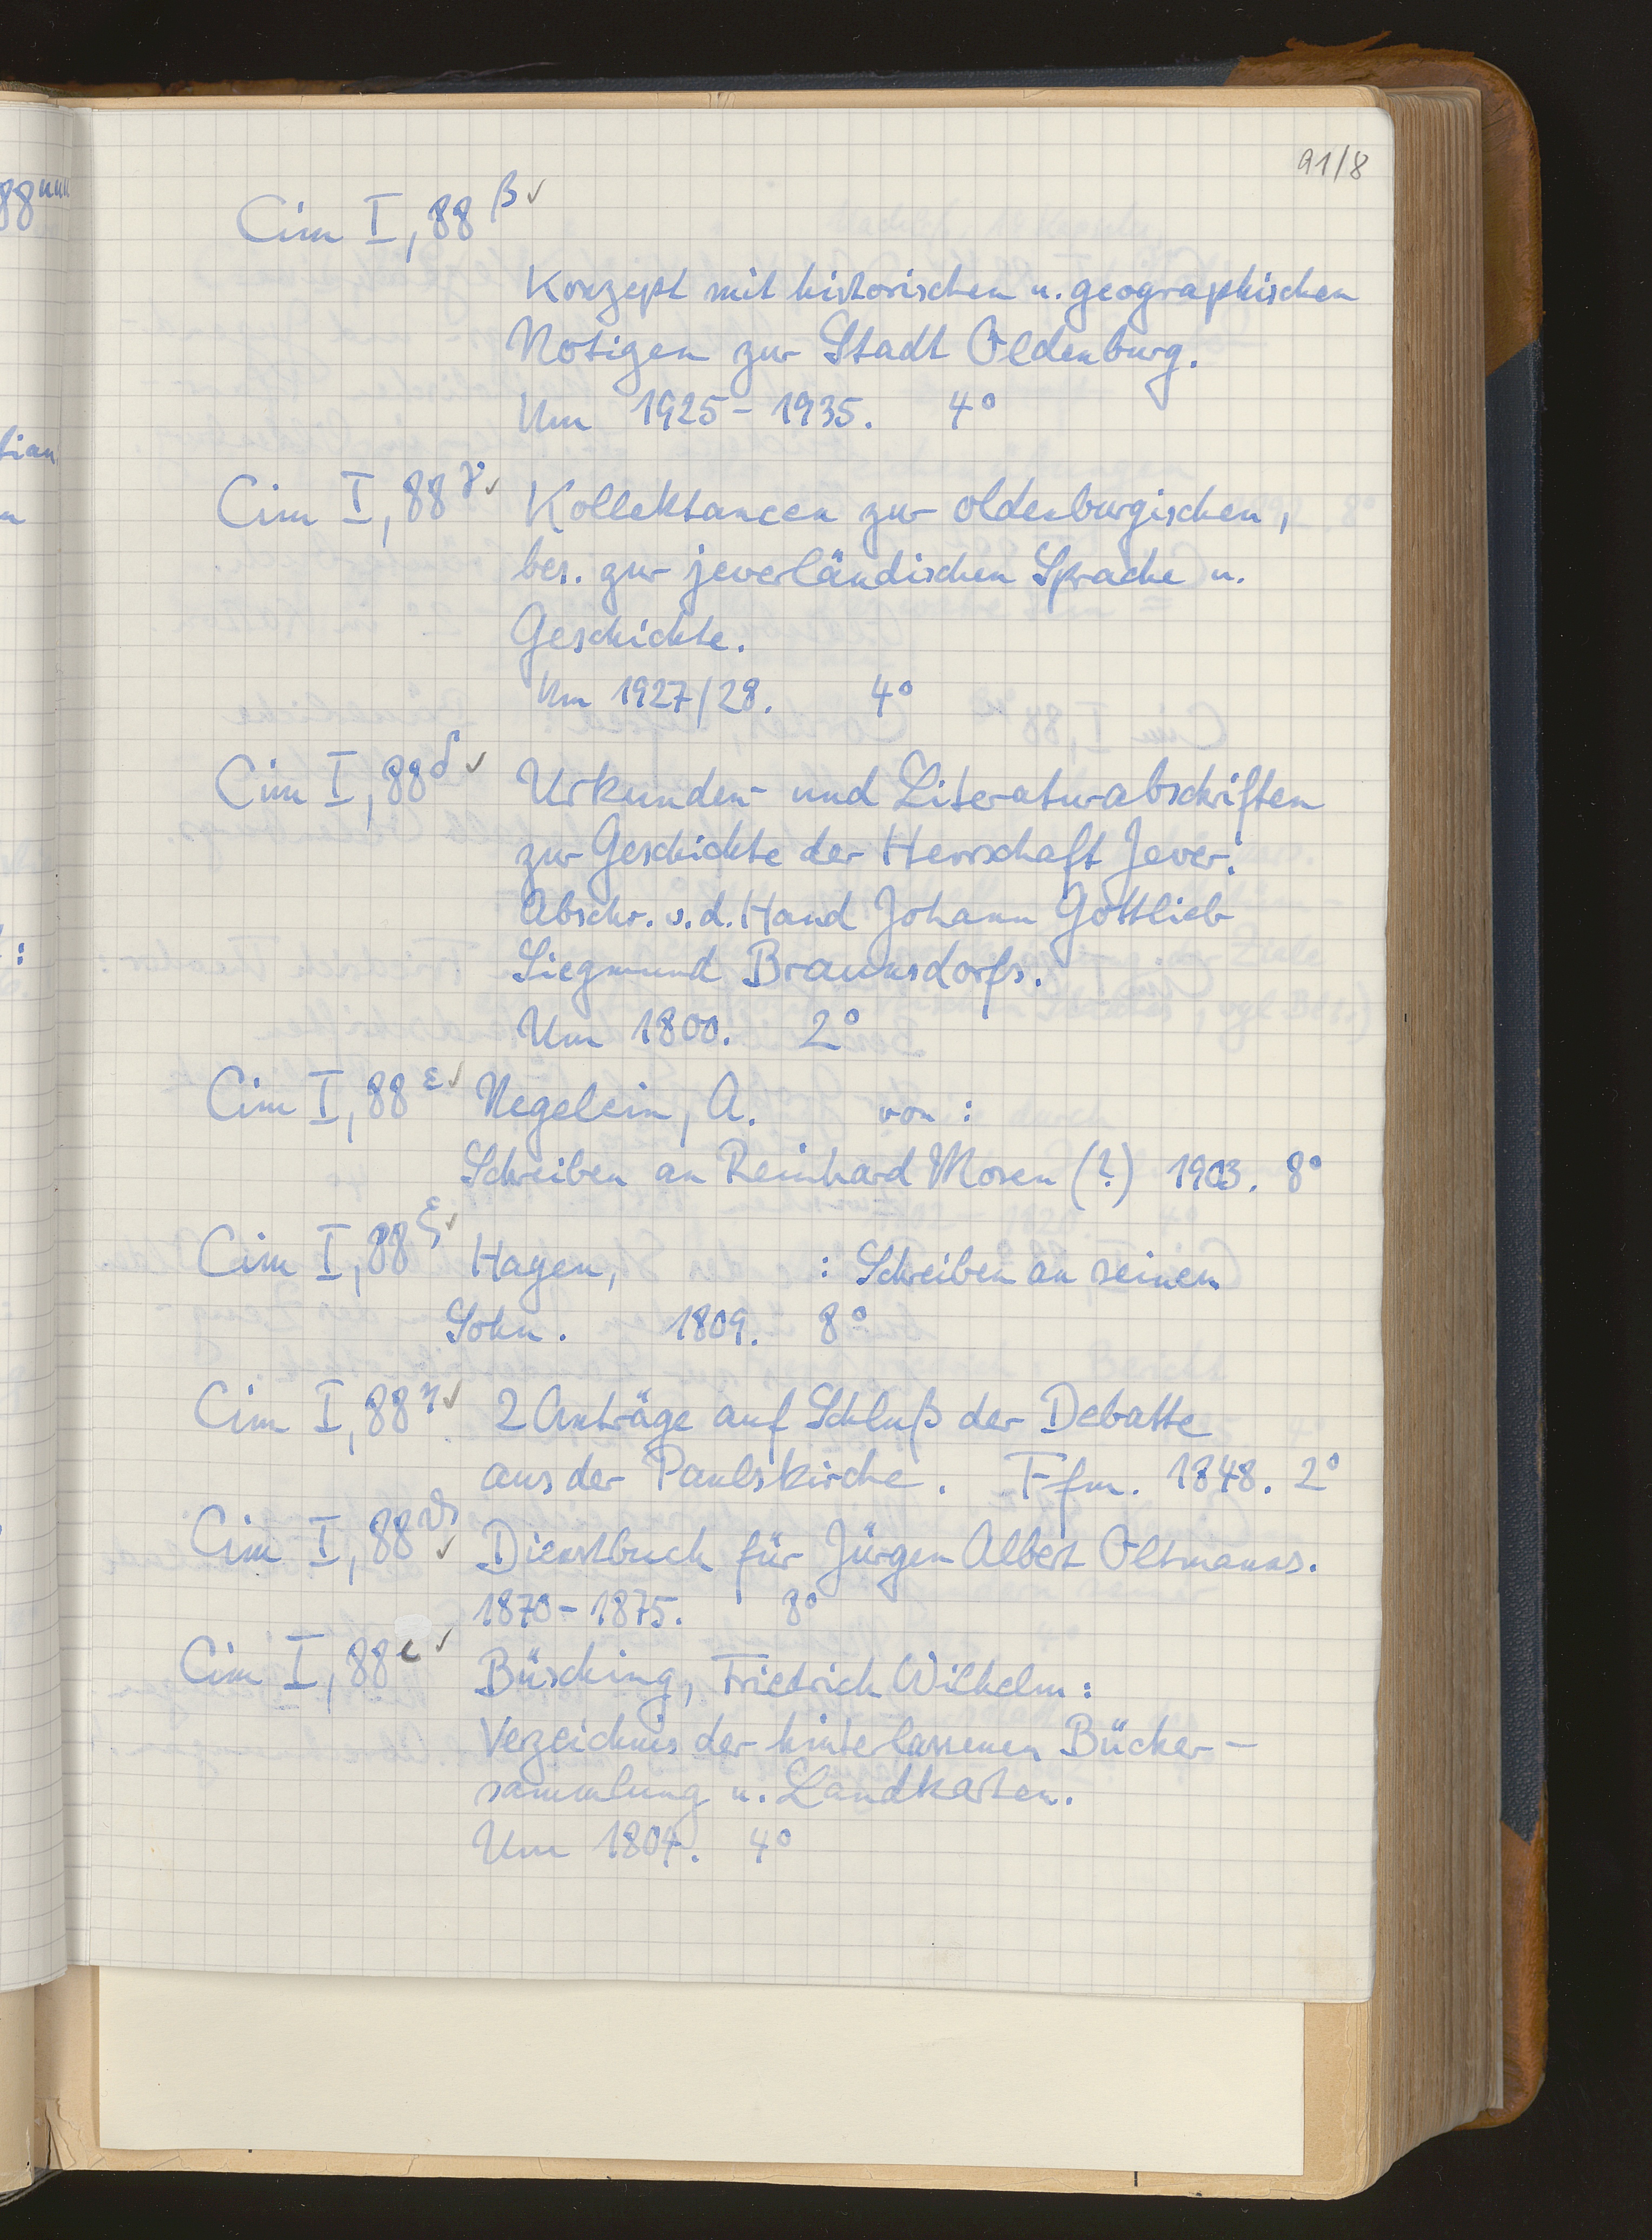 91/8
Cim I, 88 β ✓
Konzept mit historischen u. geographischen
Notizen zur Stadt Oldenburg.
Um 1925-1935. 4°
Cim I, 88 γ ✓ Kollektaneen zur oldenburgischen,
bes. zur jeverländischen Sprache u.
Geschichte.
Um 1927/28. 4°
Cim I, 88 δ ✓ Urkunden- und Literaturabschriften
zur Geschichte der Herrschaft Jever.
Abschr. v. d. Hand Johann Gottlieb
Siegmund Braunsdorfs.
Um 1800. 2°
Cim I, 88 ε ✓ Negelein, A. von :
Schreiben an Reinhard Mosen (?) 1903. 8°
Cim I, 88 ξ ✓ Hagen, : Schreiben an seinen
Sohn. 1809. 8°
Cim I, 88 η ✓ 2 Anträge auf Schluß der Debatte
aus der Paulskirche. Ffm. 1848. 2°
Cim I, 88 ϑ ✓ Dienstbuch für Jürgen Albert Oltmanns.
1870-1875. 8°
Cim I, 88 ι ✓ Büsching, Friedrich Wilhelm :
Verzeichnis der hinterlassenen Bücher-
sammlung u. Landkarten.
Um 1804. 4°